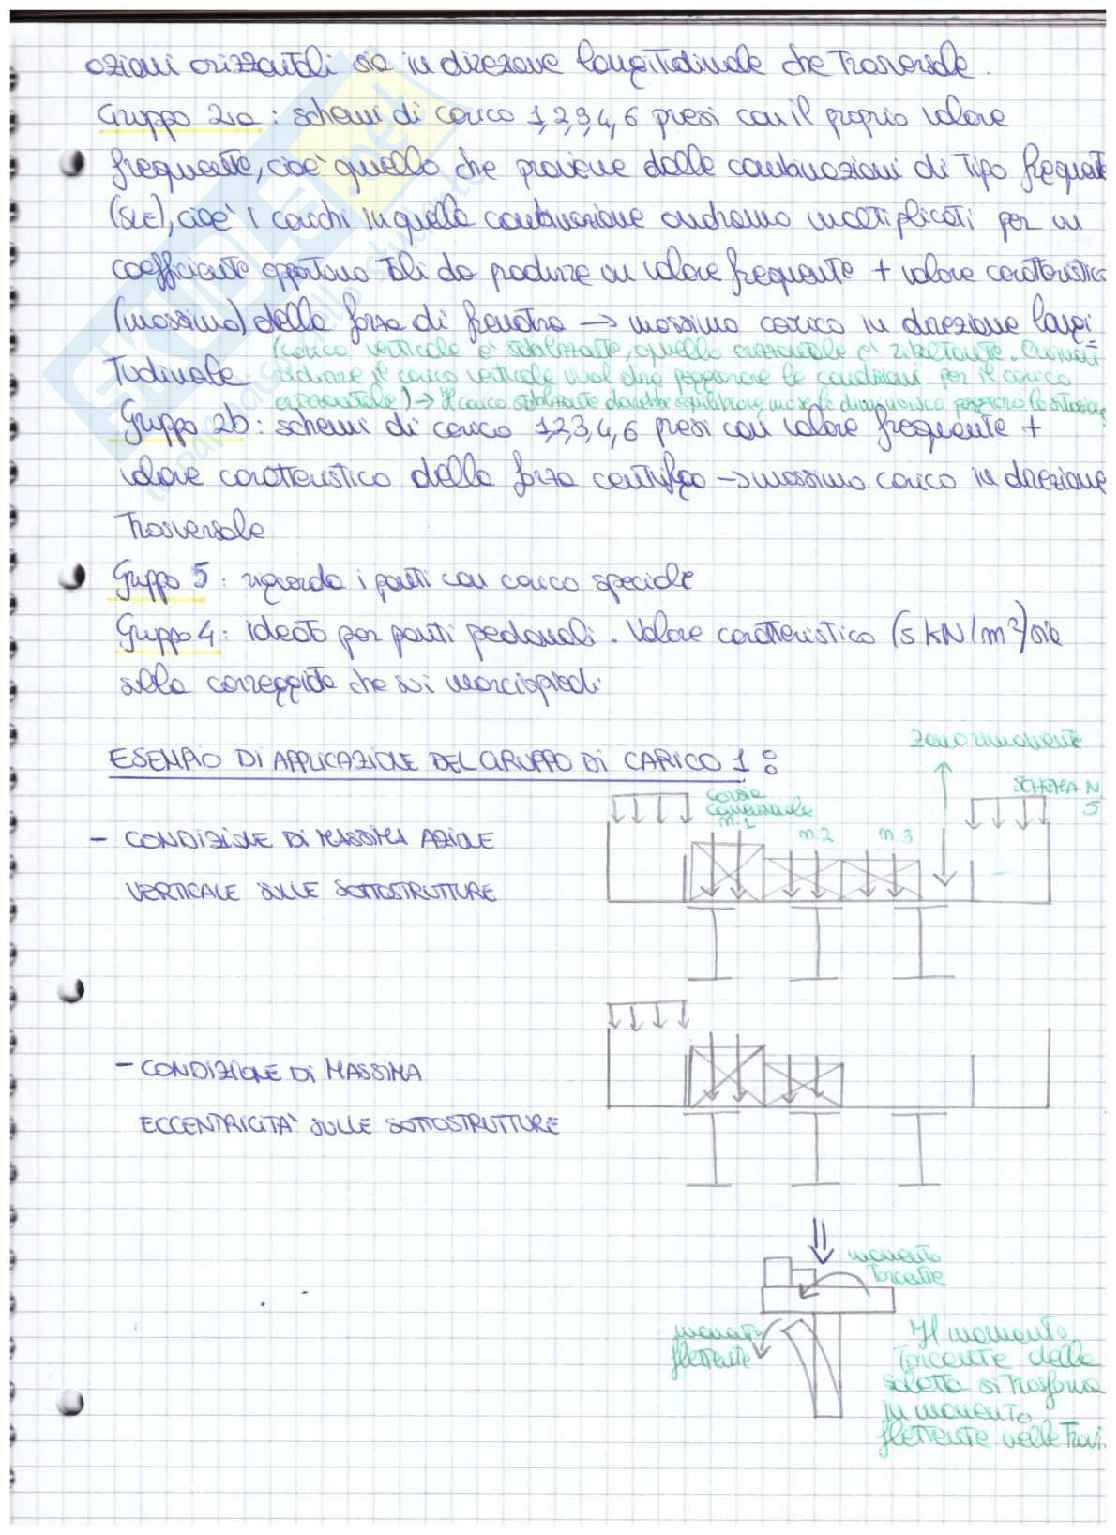 azioni orizzontali sia in direzione longitudinale che trasversale.
Gruppo 2a: schemi di carico 1,2,3,4,6 presi con il proprio valore
frequente, cioè quello che proviene dalle combinazioni di tipo frequente
(SLE), cioè i carichi in quella combinazione andranno moltiplicati per un
coefficiente opportuno tali da produrre un valore frequente + valore caratteristico
(massimo) della forza di frenatura → massimo carico in direzione longi
tudinale
(carico verticale è stabilizzante, quello orizzontale è ribaltante. Quindi
ridurre il carico verticale vuol dire peggiorare le condizioni per il carico
orizzontale) → Il carico stabilizzante dovrebbe equilibrare, ma se lo diminuisco peggioro la situazione
Gruppo 2b: schemi di carico 1,2,3,4,6 presi con valore frequente +
valore caratteristico della forza centrifuga → massimo carico in direzione
trasversale
Gruppo 5: riguarda i ponti con carico speciale
Gruppo 4: ideato per ponti pedonali. Valore caratteristico (5 kN/m²) sia
sulla carreggiata che sui marciapiedi
ESEMPIO DI APPLICAZIONE DEL GRUPPO DI CARICO 1:
zona rimanente
SCHEMA N.
5
corsia
convenzionale
n.1
n.2
n.3
- CONDIZIONE DI MASSIMA AZIONE
VERTICALE SULLE SOTTOSTRUTTURE
- CONDIZIONE DI MASSIMA
ECCENTRICITA' SULLE SOTTOSTRUTTURE
momento
torcente
momento
flettente
Il momento
torcente della
soletta si trasforma
in momento
flettente nelle travi.